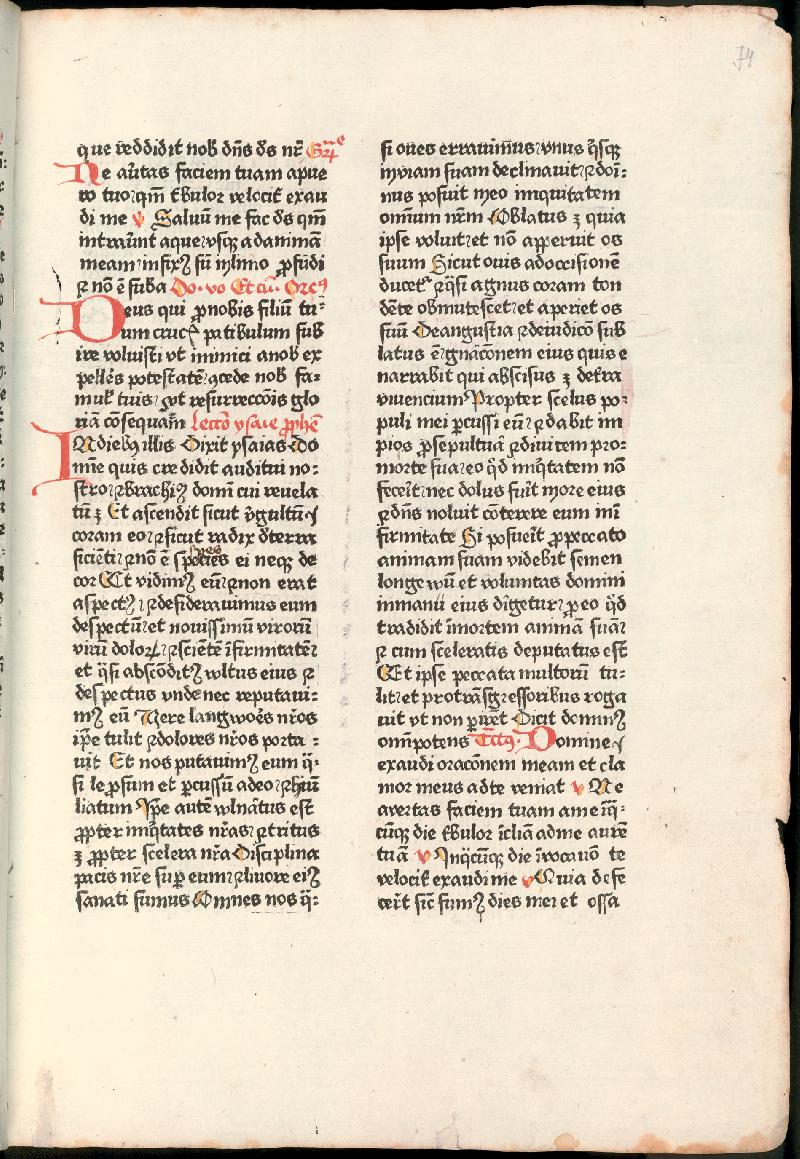 74
que reddidit nob dn̄s ds nr̄ Gr̄e
Ne au̾tas faciem tuam apue
ro tuo qm̄ t̾bulor velocit̾ exau
di me v Saluū me fac ds qm̄
intrau̾nt aque vsqꝫ ad animā
meam infixꝰ sū ī lymo ꝓfūdi
ꝛ nō ē suba Do· vo Et cū· Orēs
Deus qui ꝓ nobis filiū tu⸗
um crucꝭ patibulum sub
ire voluisti vt inimici a nob ex
pelleēs potestatē ꝯcede nob fa⸗
mul̾ tuis ꝙt resurreccōis glo
riā cōsequam̾ Lecco ysaie ꝓphē
In diebꝫ illis Dixit ysaias Do
mīe quis credidit auditui no⸗
stro ꝛ brachiꝫ domī cui reuela
tū ꝫ Et ascendit sicut v̾gultū
coram eo ꝛ sicut radix d̾ terra
siciēti ꝛ nō ē spes species ei neqꝫ de
cor Et vidimꝰ eū ꝛ non erat
aspectꝰ ꝛ desiderauimus eum
despectū et nouissimū virorū
virū dolorꝝ ꝛ sciētē īfirmitatē
et q̄si abscōditꝰ vltus eius ꝛ
despectus vnde nec reputaui⸗
mꝰ eū Vere langwoēs nr̄os
ip̄e tulit ꝛ dolores nr̄os porta⸗
uit Et nos putauimꝰ eum q̄⸗
si leꝓsum et ꝑcussū a deo ꝛ hūi
liatum Ip̄e autē vln̄atus est
ꝓpter iniq̄tates nr̄as ꝛ tritus
ꝫ ꝓpter scelera nr̄a Disciplina
pacis nr̄e suꝑ eum ꝛ liuore eiꝰ
sanati sumus Omnes nos q̄⸗
si oues errauimus vnus q̄sqꝫ
in viam suam declinauit ꝛ doi⸗
nus posuit in eo iniquitatem
omium nr̄m Oblatus ꝫ quia
ipse voluit et nō apperuit os
suum Sicut ouis ad occisionē
ducet̾ ꝛ q̄si agnus coram ton
dēte obmutescet et aperiet os
suū De angustia ꝛ de iudicō sub
latus ē gn̄acōnem eius quis e
narrabit qui abscisus ꝫ de t̾ra
viuencium Propter scelus po⸗
puli mei ꝑcussi eū ꝛ dabit im
pios ꝓ sepultuā ꝛ diuitem pro⸗
morte sua eo q̄d iniq̄tatem nō
fecēit nec dolus fuit in ore eius
ꝛ dn̄s noluit cōterere eum in i
firmitate Si posueīt ꝓ peccato
animam suam videbit semen
longewū et voluntas domini
in manū eius dīgetur ꝓ eo q̄d
tradidit ī mortem animā suā
ꝛ cum sceleratis deputatus est
Et ipse peccata multorū tu⸗
lit et pro trāsgressoribus roga
uit vt non ꝑirēt Dicit dominꝰ
omīpotens Tractꝰ Domine
exaudi oracōnem meam et cla
mor meus ad te veniat v Ne
auertas faciem tuam a me iq̄⸗
cūqꝫ die t̾bulor īclīa ad me aurē
tuā v In q̄cūqꝫ die īvocauō te
velocit̾ exaudi me v Quia defe
cēr̄t sic̄ fumꝰ dies mei et ossa